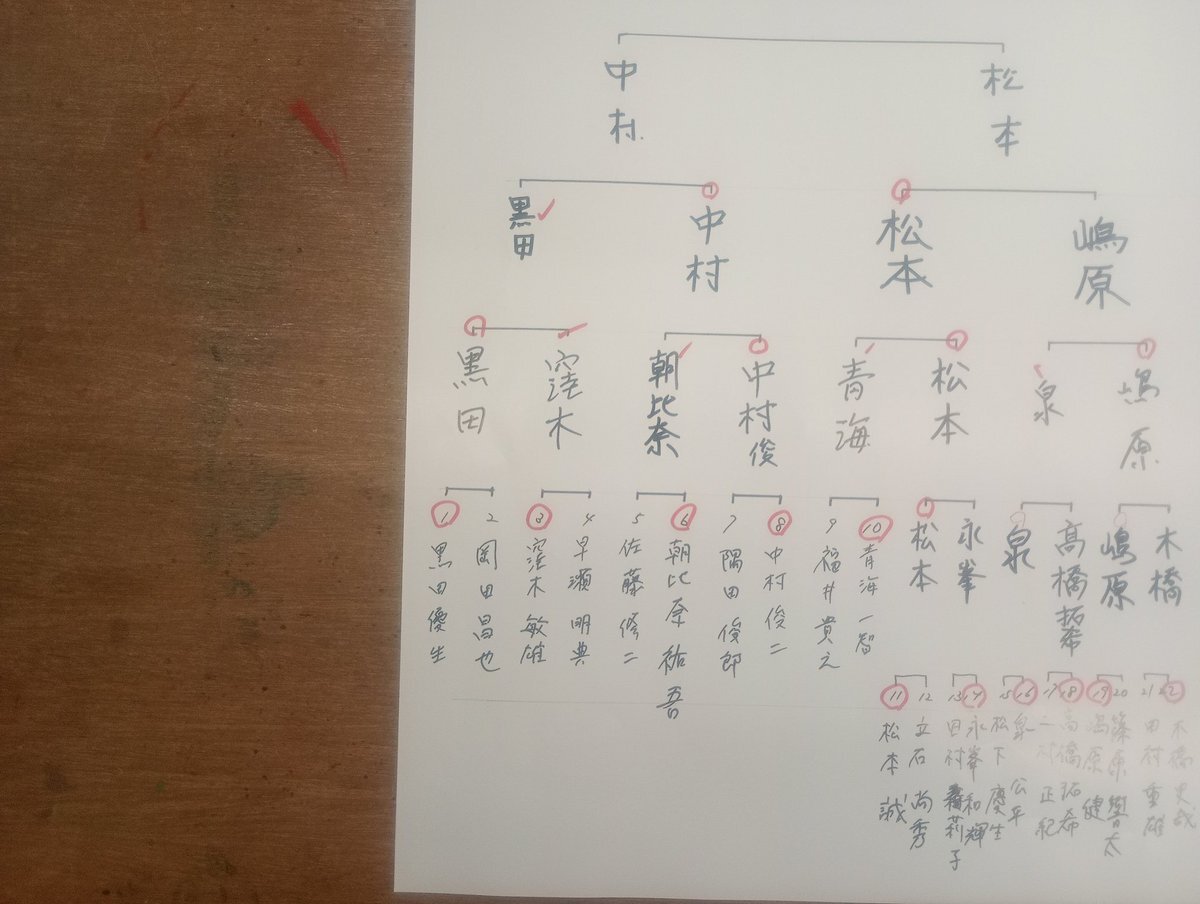 中村
松本
黒田
中村
松本
嶋原
黒田
窪木
朝比奈
中村俊
青海
松本
泉
嶋原
1 黒田優生
2 岡田昌也
3 窪木敏雄
4 早瀬明典
5 佐藤修二
6 朝比奈祐吾
7 隅田俊郎
8 中村俊二
9 福井貴之
10 青海一智
松本
永峯
泉
高橋拓希
嶋原
木橋
11 松本誠
12 立石尚秀
13 田村
14 永峯和輝
15 松下慶生
16 泉公平
17 正紀
18 高橋拓希
19 嶋原健
20 篠原響太
21 田村重雄
22 木橋